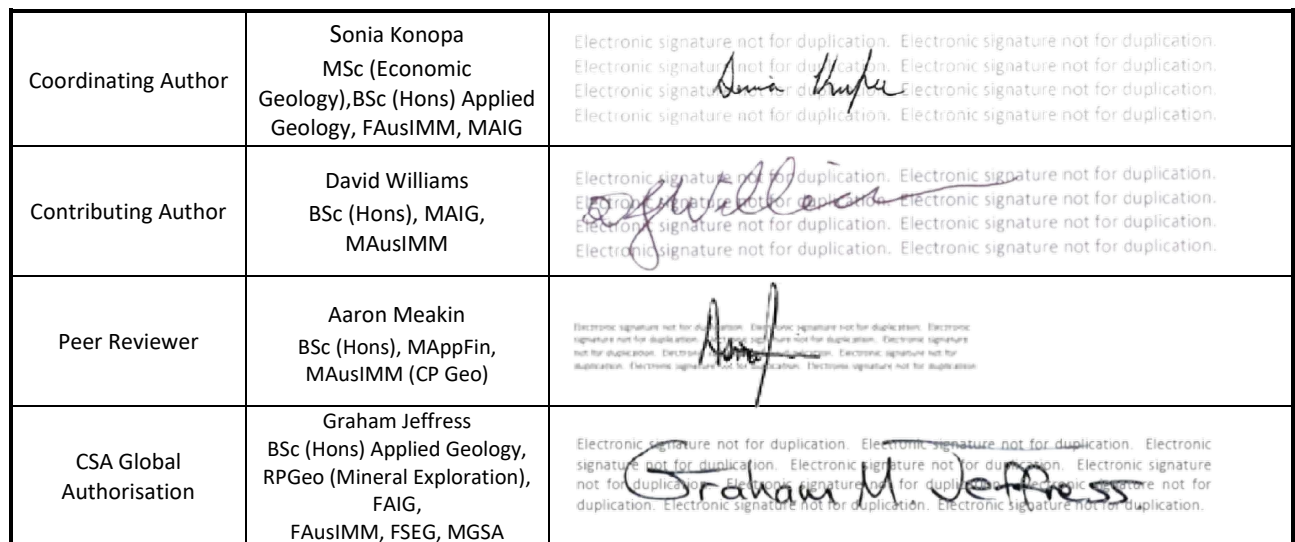 Coordinating Author
Sonia Konopa
MSc (Economic
Geology),BSc (Hons) Applied
Geology, FAusIMM, MAIG
Electronic signature not for duplication. Electronic signature not for duplication.
Electronic signature not for duplication. Electronic signature not for duplication.
Electronic signature not for duplication. Electronic signature not for duplication.
Electronic signature not for duplication. Electronic signature not for duplication.
Contributing Author
David Williams
BSc (Hons), MAIG,
MAusIMM
Electronic signature not for duplication. Electronic signature not for duplication.
Electronic signature not for duplication. Electronic signature not for duplication.
Electronic signature not for duplication. Electronic signature not for duplication.
Electronic signature not for duplication. Electronic signature not for duplication.
Peer Reviewer
Aaron Meakin
BSc (Hons), MAppFin,
MAusIMM (CP Geo)
Electronic signature not for duplication. Electronic signature not for duplication. Electronic
signature not for duplication. Electronic signature not for duplication. Electronic signature
not for duplication. Electronic signature not for duplication. Electronic signature not for
duplication. Electronic signature not for duplication. Electronic signature not for duplication
CSA Global
Authorisation
Graham Jeffress
BSc (Hons) Applied Geology,
RPGeo (Mineral Exploration),
FAIG,
FAusIMM, FSEG, MGSA
Electronic signature not for duplication. Electronic signature not for duplication. Electronic
signature not for duplication. Electronic signature not for duplication. Electronic signature
not for duplication. Electronic signature not for duplication. Electronic signature not for
duplication. Electronic signature not for duplication. Electronic signature not for duplication.
Graham M. Jeffress